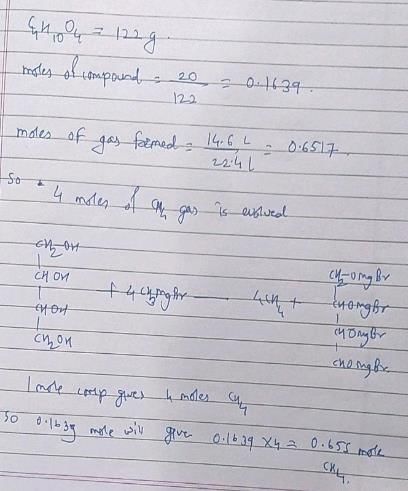 C4H10O4 = 122 g.
moles of compound = 20/122 = 0.1639.
moles of gas formed = 14.6 L/22.4 L = 0.6517.
So 4 moles of CH4 gas is evolved
CH2OH
|
CHOH
|
CHOH
|
CH2OH
+ 4 CH3MgBr —— 4CH4 +
CH2-OMgBr
|
CHOMgBr
|
CHOMgBr
|
CHOMgBr
1 mole comp gives 4 moles CH4
So 0.1639 mole will give 0.1639 x 4 = 0.655 mole
CH4.